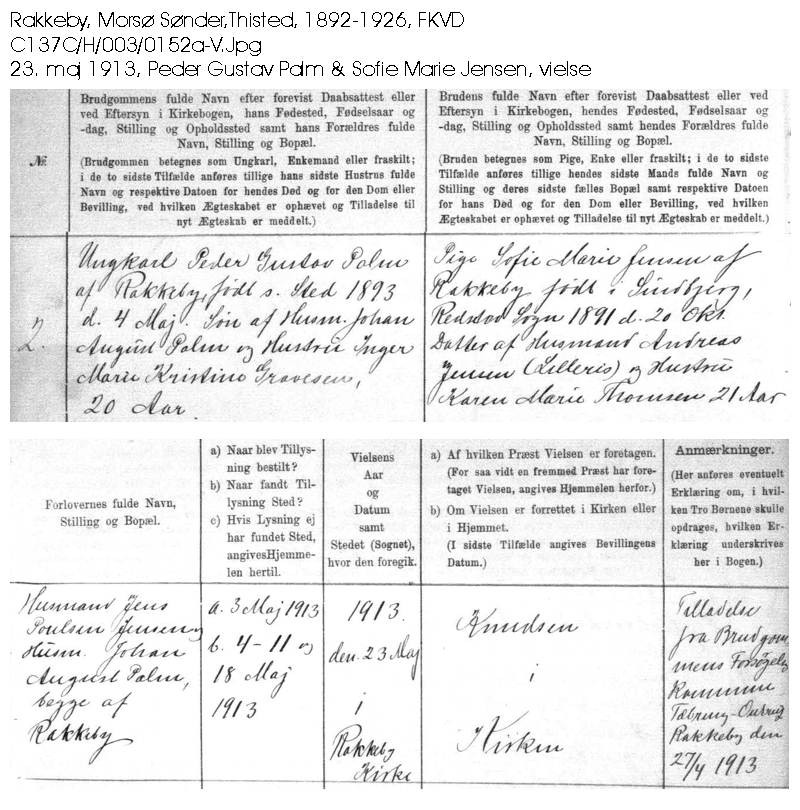 Rakkeby, Morsø Sønder,Thisted, 1892-1926, FKVD
C137C/H/003/0152a-V.Jpg
23. maj 1913, Peder Gustav Palm & Sofie Marie Jensen, vielse
№
Brudgommens fulde Navn efter forevist Daabsattest eller
ved Eftersyn i Kirkebogen, hans Fødested, Fødselsaar og
-dag, Stilling og Opholdssted samt hans Forældres fulde
Navn, Stilling og Bopæl.
(Brudgommen betegnes som Ungkarl, Enkemand eller fraskilt;
i de to sidste Tilfælde anføres tillige hans sidste Hustrus fulde
Navn og respektive Datoen for hendes Død og for den Dom eller
Bevilling, ved hvilken Ægteskabet er ophævet og Tilladelse til
nyt Ægteskab er meddelt.)
Brudens fulde Navn efter forevist Daabsattest eller ved
Eftersyn i Kirkebogen, hendes Fødested, Fødselsaar og
-dag, Stilling og Opholdssted samt hendes Forældres fulde
Navn, Stilling og Bopæl.
(Bruden betegnes som Pige, Enke eller fraskilt; i de to sidste
Tilfælde anføres tillige hendes sidste Mands fulde Navn og
Stilling og deres sidste fælles Bopæl samt respektive Datoen
for hans Død og for den Dom eller Bevilling, ved hvilken
Ægteskabet er ophævet og Tilladelse til nyt Ægteskab er meddelt.)
2.
Ungkarl Peder Gustav Palm
af Rakkeby, født s. Sted 1893
d. 4 Maj. Søn af Husm. Johan
August Palm og Hustru Inger
Marie Kristine Gravesen,
20 Aar
Pige Sofie Marie Jensen af
Rakkeby født i Sindbjerg,
Redsted Sogn 1891 d. 20 Okt.
Datter af Husmand Andreas
Jensen (Lilleris) og Hustru
Karen Marie Thomsen 21 Aar
Forlovernes fulde Navn,
Stilling og Bopæl.
a) Naar blev Tillys-
ning bestilt?
b) Naar fandt Til-
lysning Sted?
c) Hvis Lysning ej
har fundet Sted,
angives Hjemme-
len hertil.
Vielsens
Aar
og
Datum
samt
Stedet (Sognet),
hvor den foregik.
a) Af hvilken Præst Vielsen er foretagen.
(For saa vidt en fremmed Præst har fore-
taget Vielsen, angives Hjemmelen herfor.)
b) Om Vielsen er forrettet i Kirken eller
i Hjemmet.
(I sidste Tilfælde angives Bevillingens
Datum.)
Anmærkninger.
(Her anføres eventuelt
Erklæring om, i hvil-
ken Tro Børnene skulle
opdrages, hvilken Er-
klæring underskrives
her i Bogen.)
Husmand Jens
Poulsen Jensen og
Husm. Johan
August Palm,
begge af
Rakkeby
a. 3 Maj 1913
b. 4-11 og
18 Maj
1913
1913.
den 23 Maj
i
Rakkeby
Kirke
Knudsen
i
Kirken
Tilladelse
fra Brudgom
mens Forsørgelses
Kommune
Rakkeby den
27/4 1913